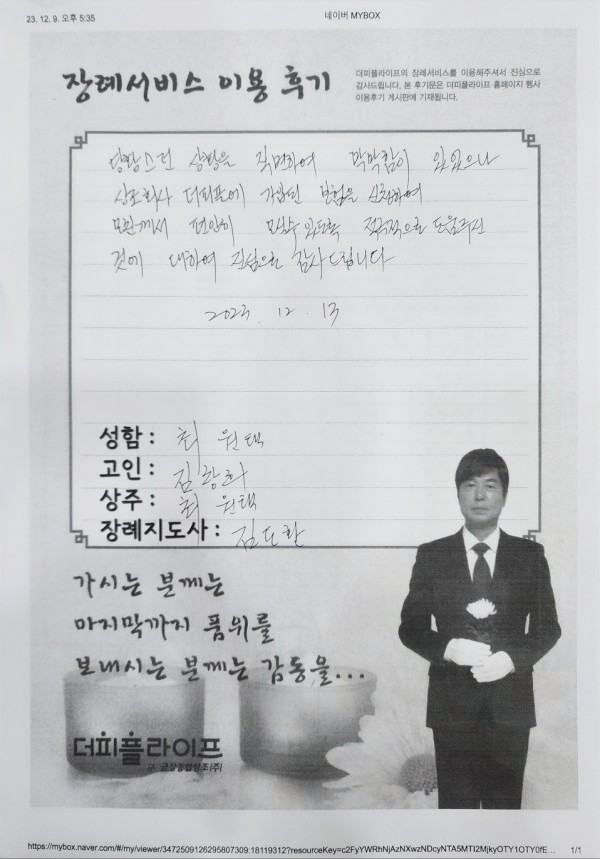 23. 12. 9. 오후 5:35
네이버 MYBOX
장례서비스 이용 후기
더피플라이프의 장례서비스를 이용해주셔서 진심으로
감사드립니다. 본 후기문은 더피플라이프 홈페이지 행사
이용후기 게시판에 기재됩니다.
당황스런 상황을 직면하여 막막함이 있었으나
상조회사 더피플에 가입된 보험을 신청하여
모친께서 편안히 모실수 있도록 적극적으로 도움주신
것에 대하여 진심으로 감사드립니다
2023. 12. 13
성함 : 최원택
고인 : 김황화
상주 : 최원택
장례지도사 : 김도환
가시는 분께는
마지막까지 품위를
보내시는 분께는 감동을...
더피플라이프
구. 금강종합상조(주)
https://mybox.naver.com/#/my/viewer/3472509126295807309:18119312?resourceKey=c2FyYWRhNjAzNXwzNDcyNTA5MTI2MjkyOTY1OTY0fE...
1/1